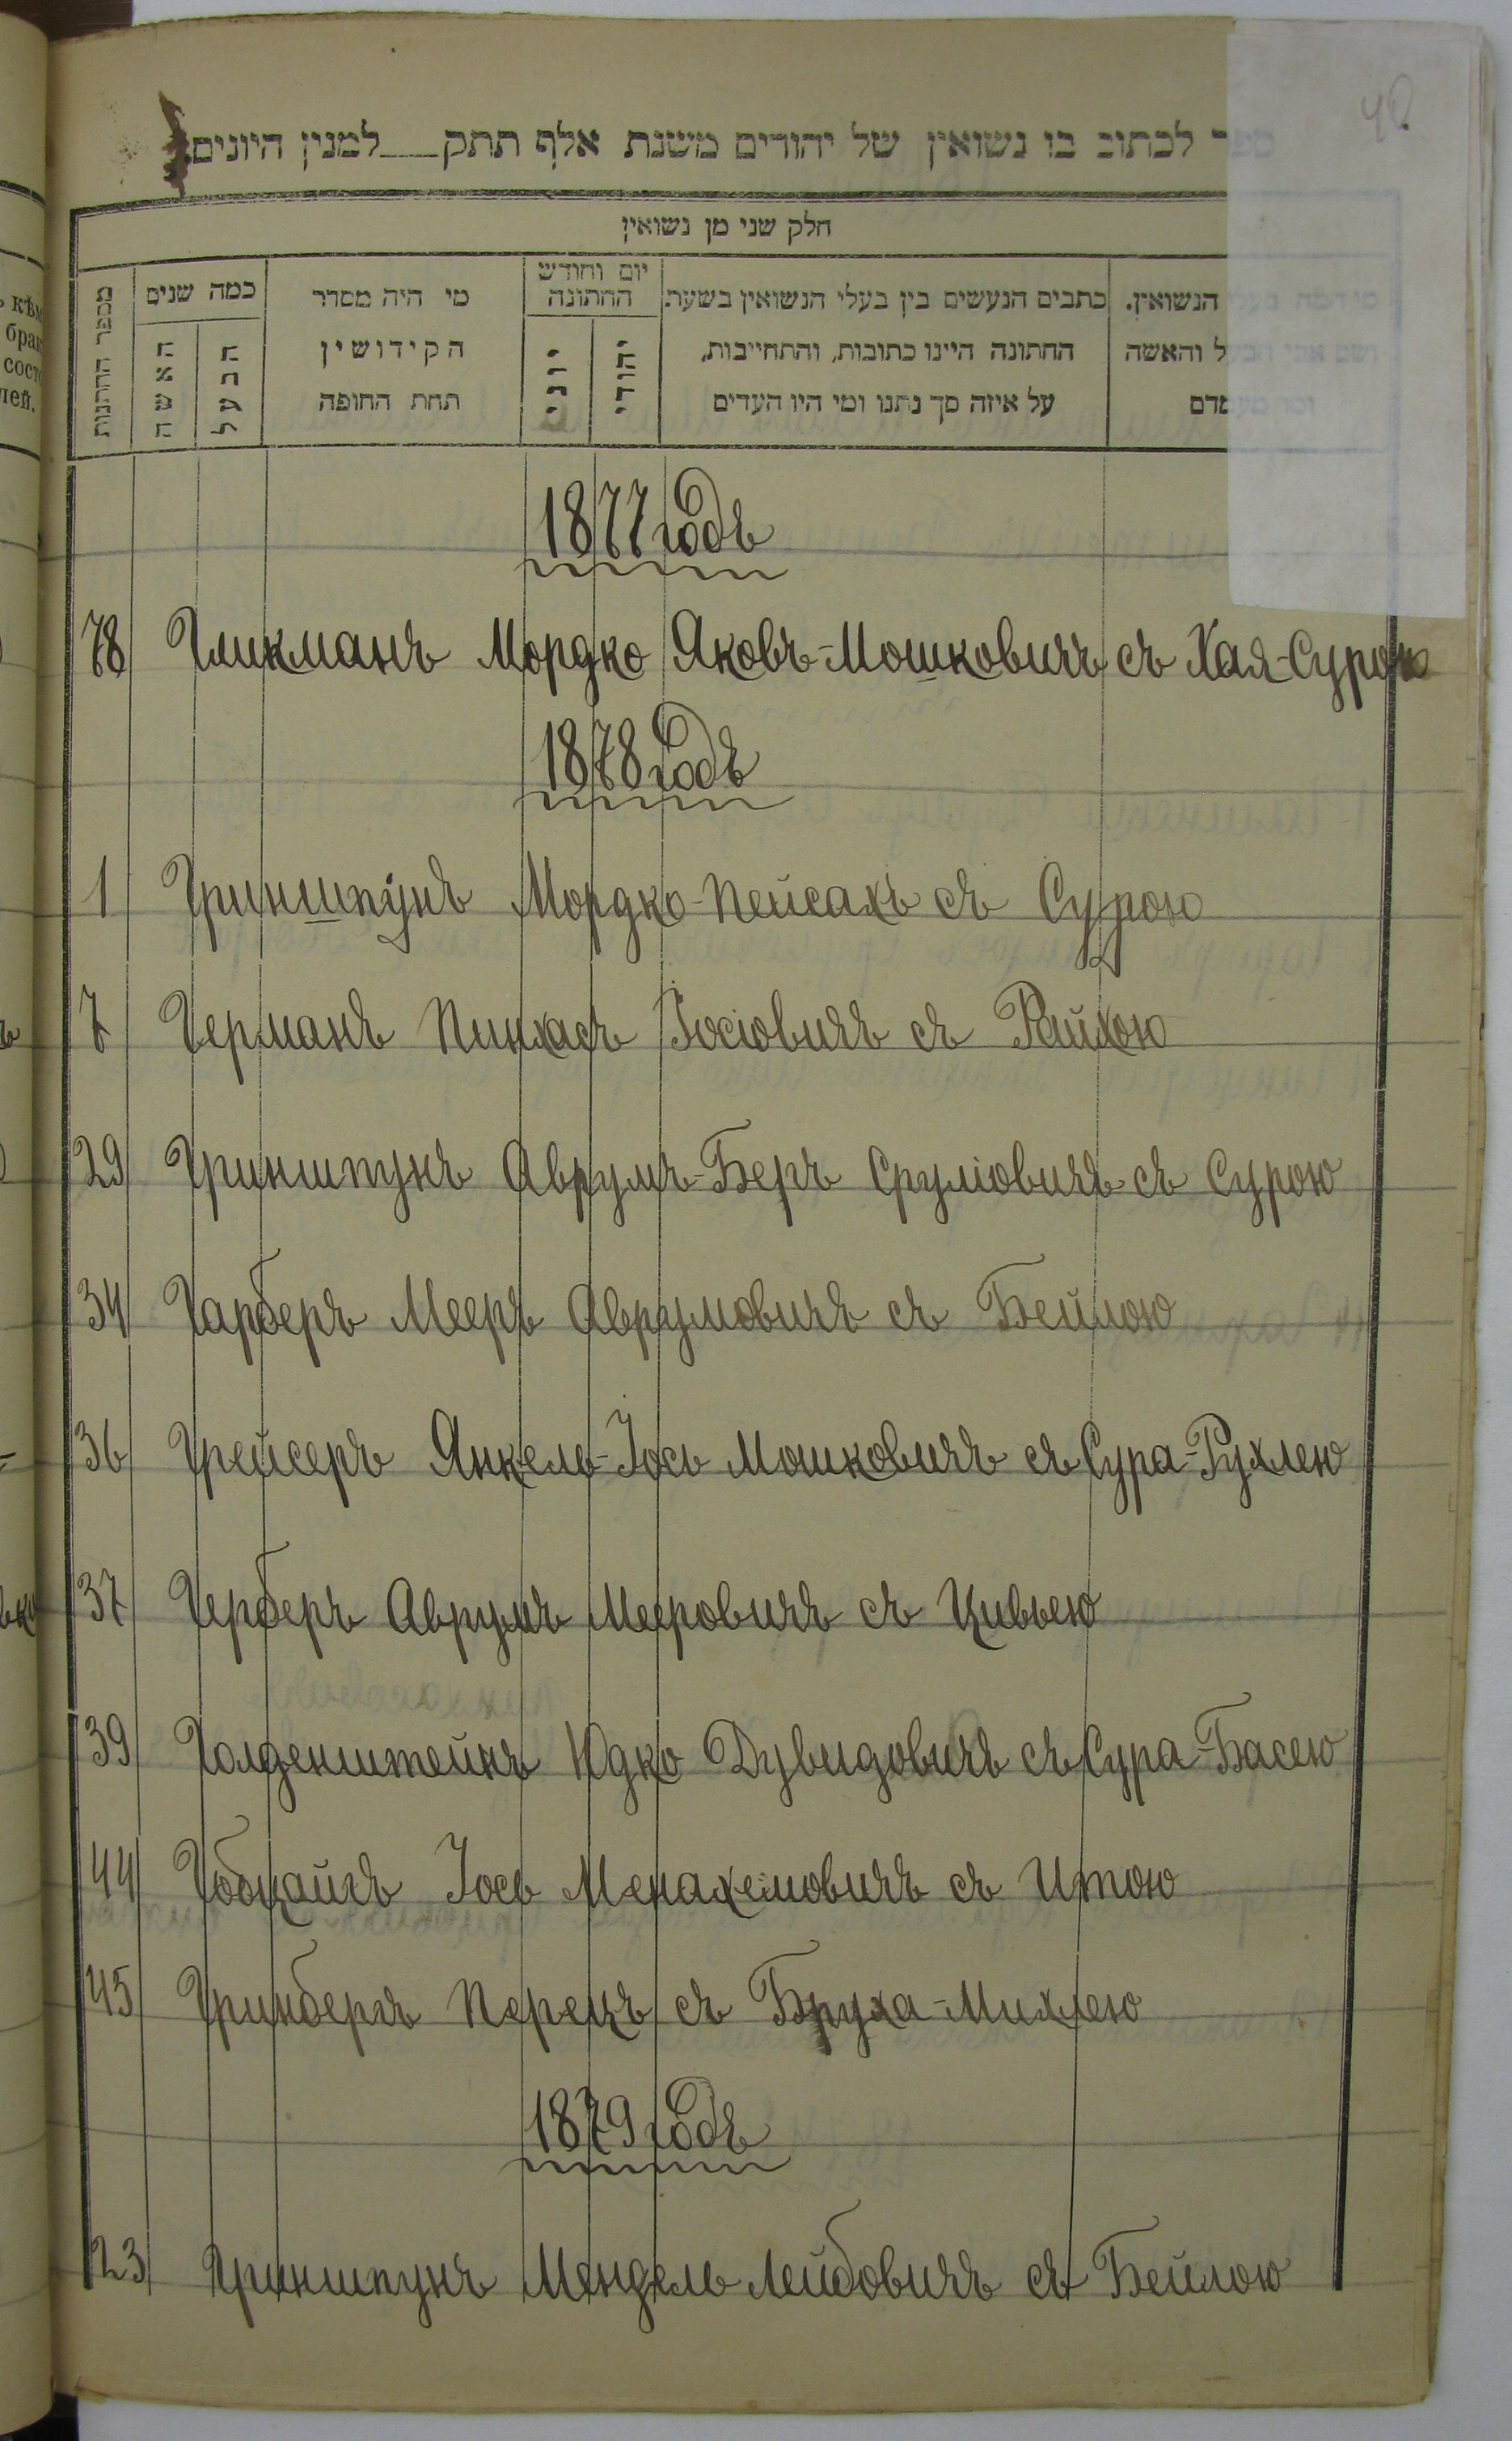 40
ספר לכתוב בו נשואין של יהודים משנת אלף תתק___למנין היונים.
חלק שני מן נשואין
מספר החתונות
כמה שנים
האשה
הבעל
מי היה מסדר
הקידושין
תחת החופה
יום וחודש
החתונה
יוני
יהודי
כתבים הנעשים בין בעלי הנשואין בשעת
החתונה היינו כתובות, והתחייבות,
על איזה סך נתנו ומי היו העדים
הנשואין.
והאשה
1877 годъ
78 Гликманъ Мордко Яковъ-Мошковичъ съ Хая-Сурою
1878 годъ
1 Гриншпунъ Мордко-Пейсахъ съ Сурою
7 Германъ Пинхасъ Іосіовичъ съ Рейхою
29 Гриншпунъ Аврумъ-Беръ Сруліовичъ съ Сурою
34 Гарберъ Мееръ Аврумовичъ съ Бейлою
36 Грейсеръ Янкель-Іось Мошковичъ съ Сура-Рухлею
37 Герберъ Аврумъ Мееровичъ съ Цивьею
39 Голденштейнъ Юдко Дувидовичъ съ Сура-Басею
44 Гобцайгъ Іось Менахемовичъ съ Итою
45 Гринбергъ Перецъ съ Бруха-Михлею
1879 годъ
23 Гриншпунъ Мендель Лейбовичъ съ Бейлою